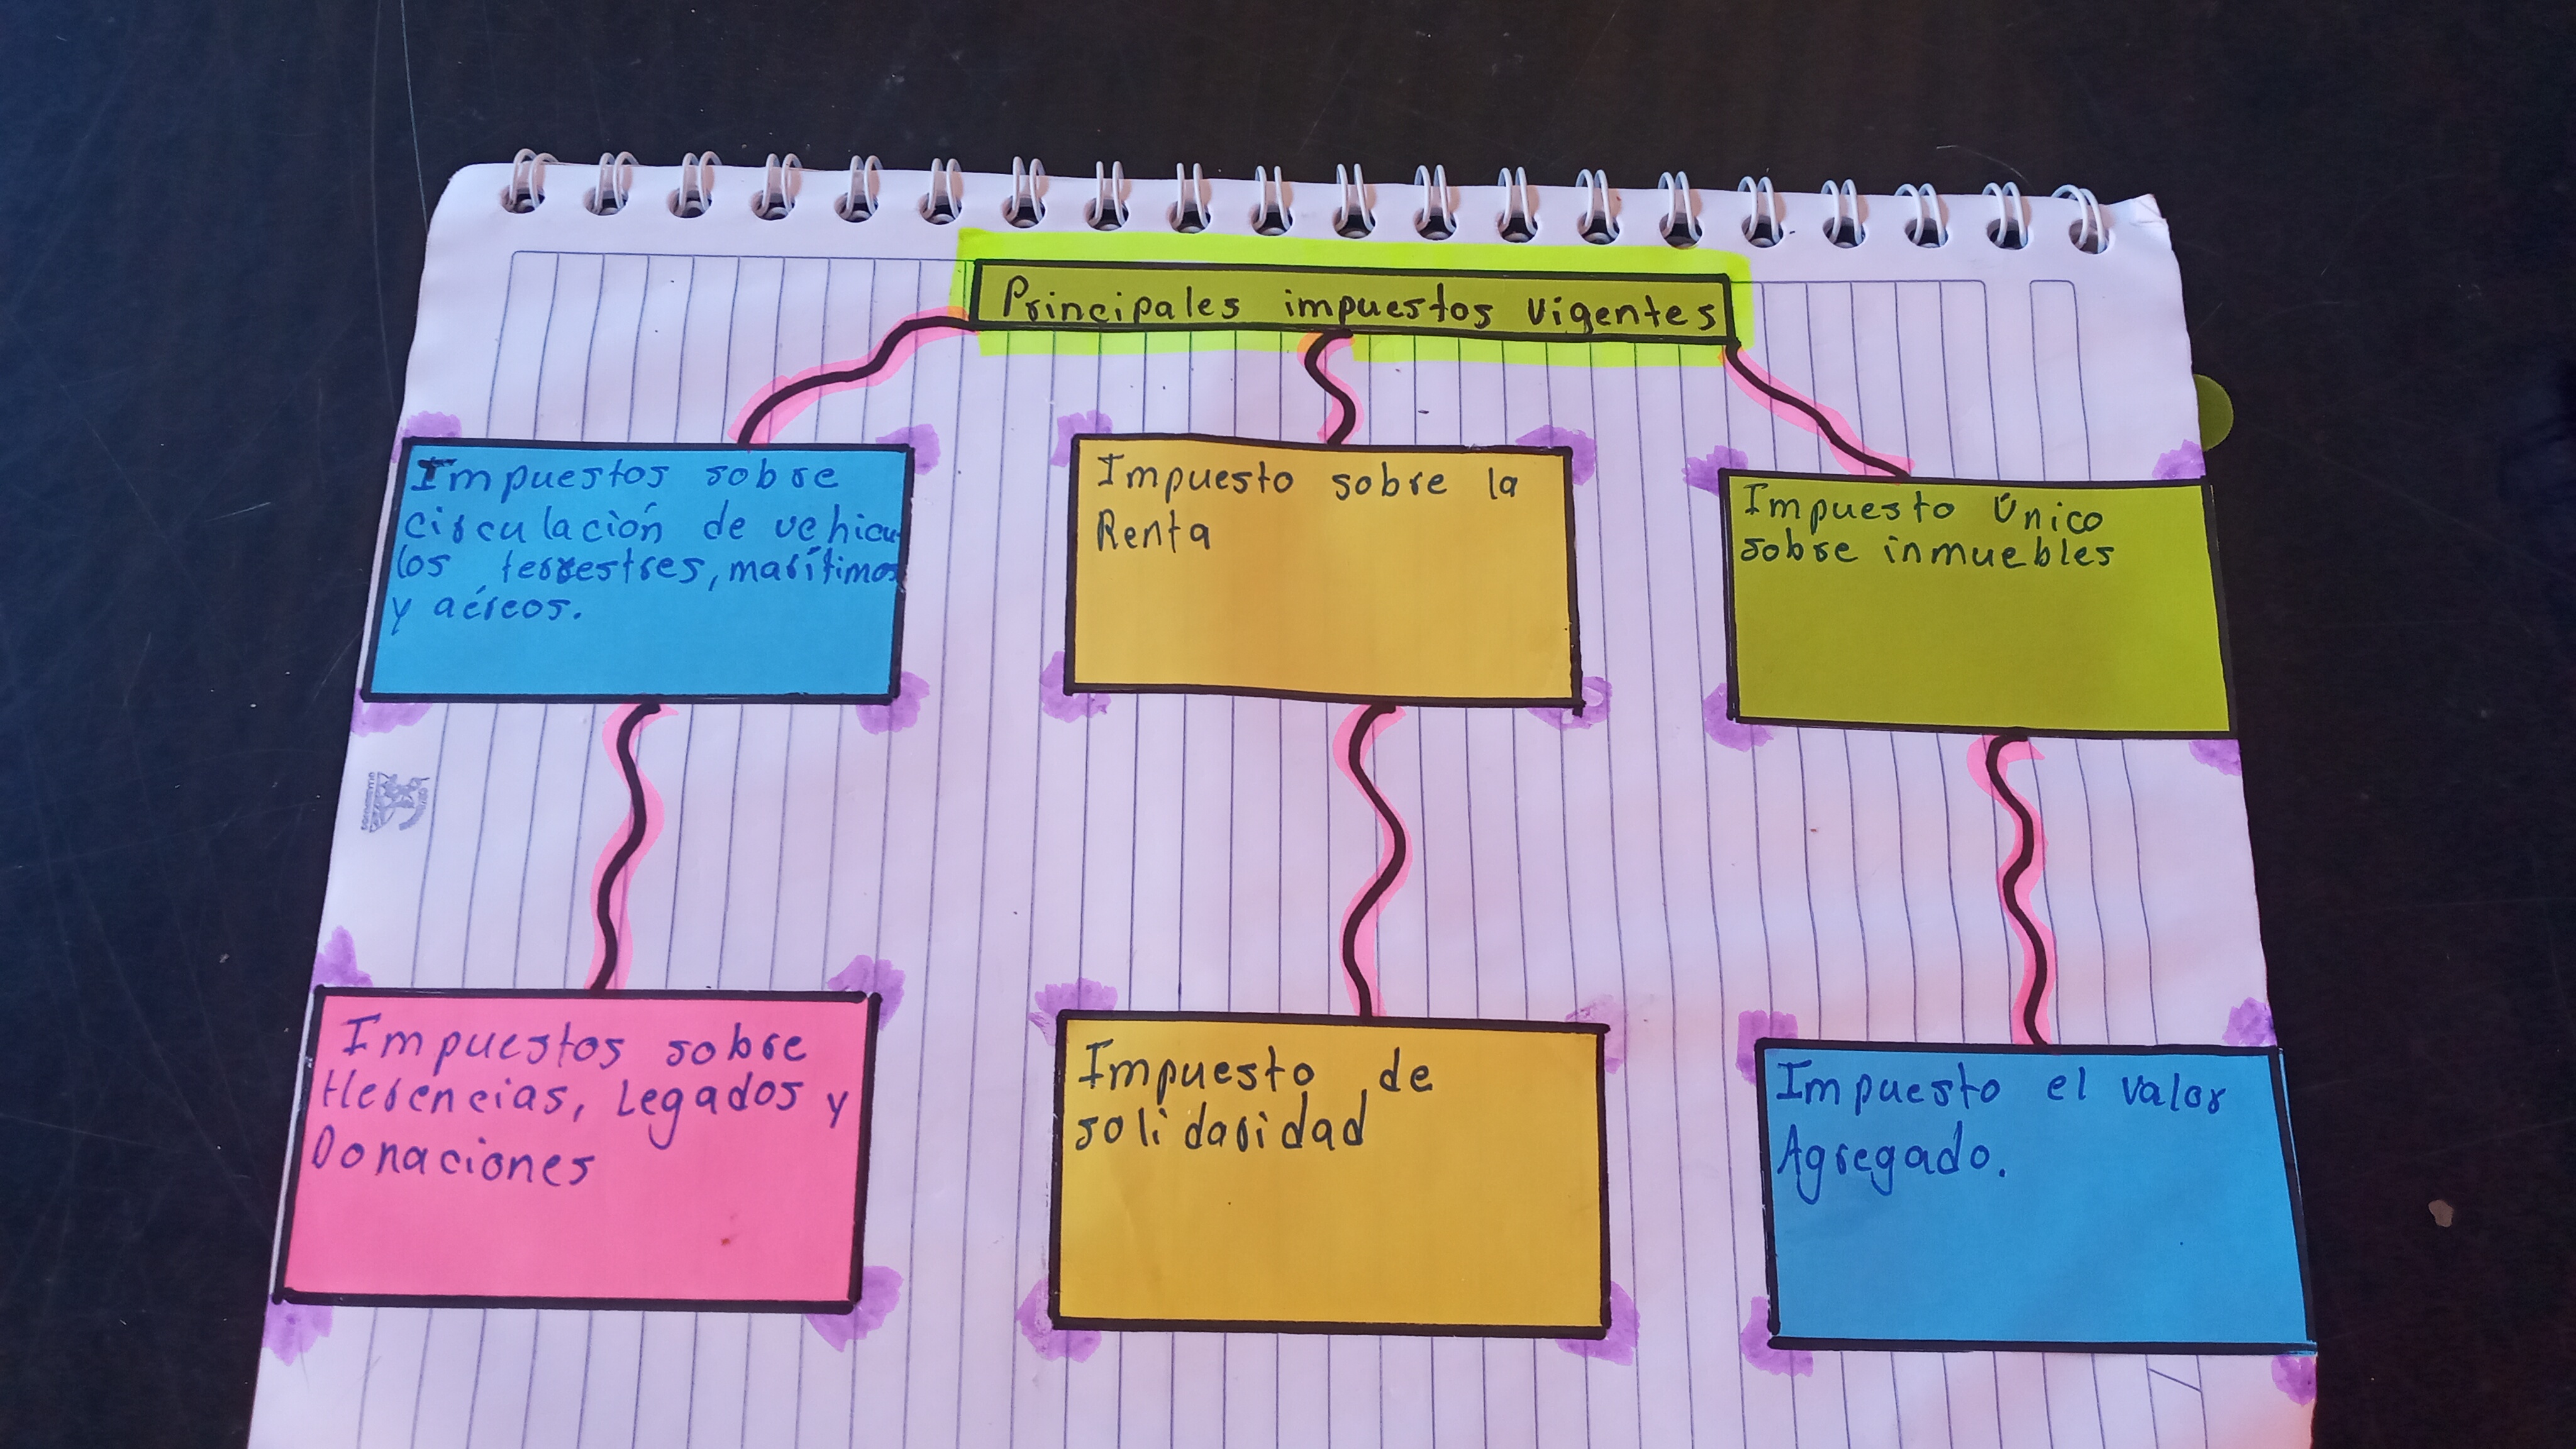 Principales impuestos vigentes
Impuestos sobre
circulación de vehicu-
los terrestres, marítimos
y aéreos.
Impuesto sobre la
Renta
Impuesto Único
sobre inmuebles
Impuestos sobre
Herencias, Legados y
Donaciones
Impuesto de
solidaridad
Impuesto el valor
Agregado.